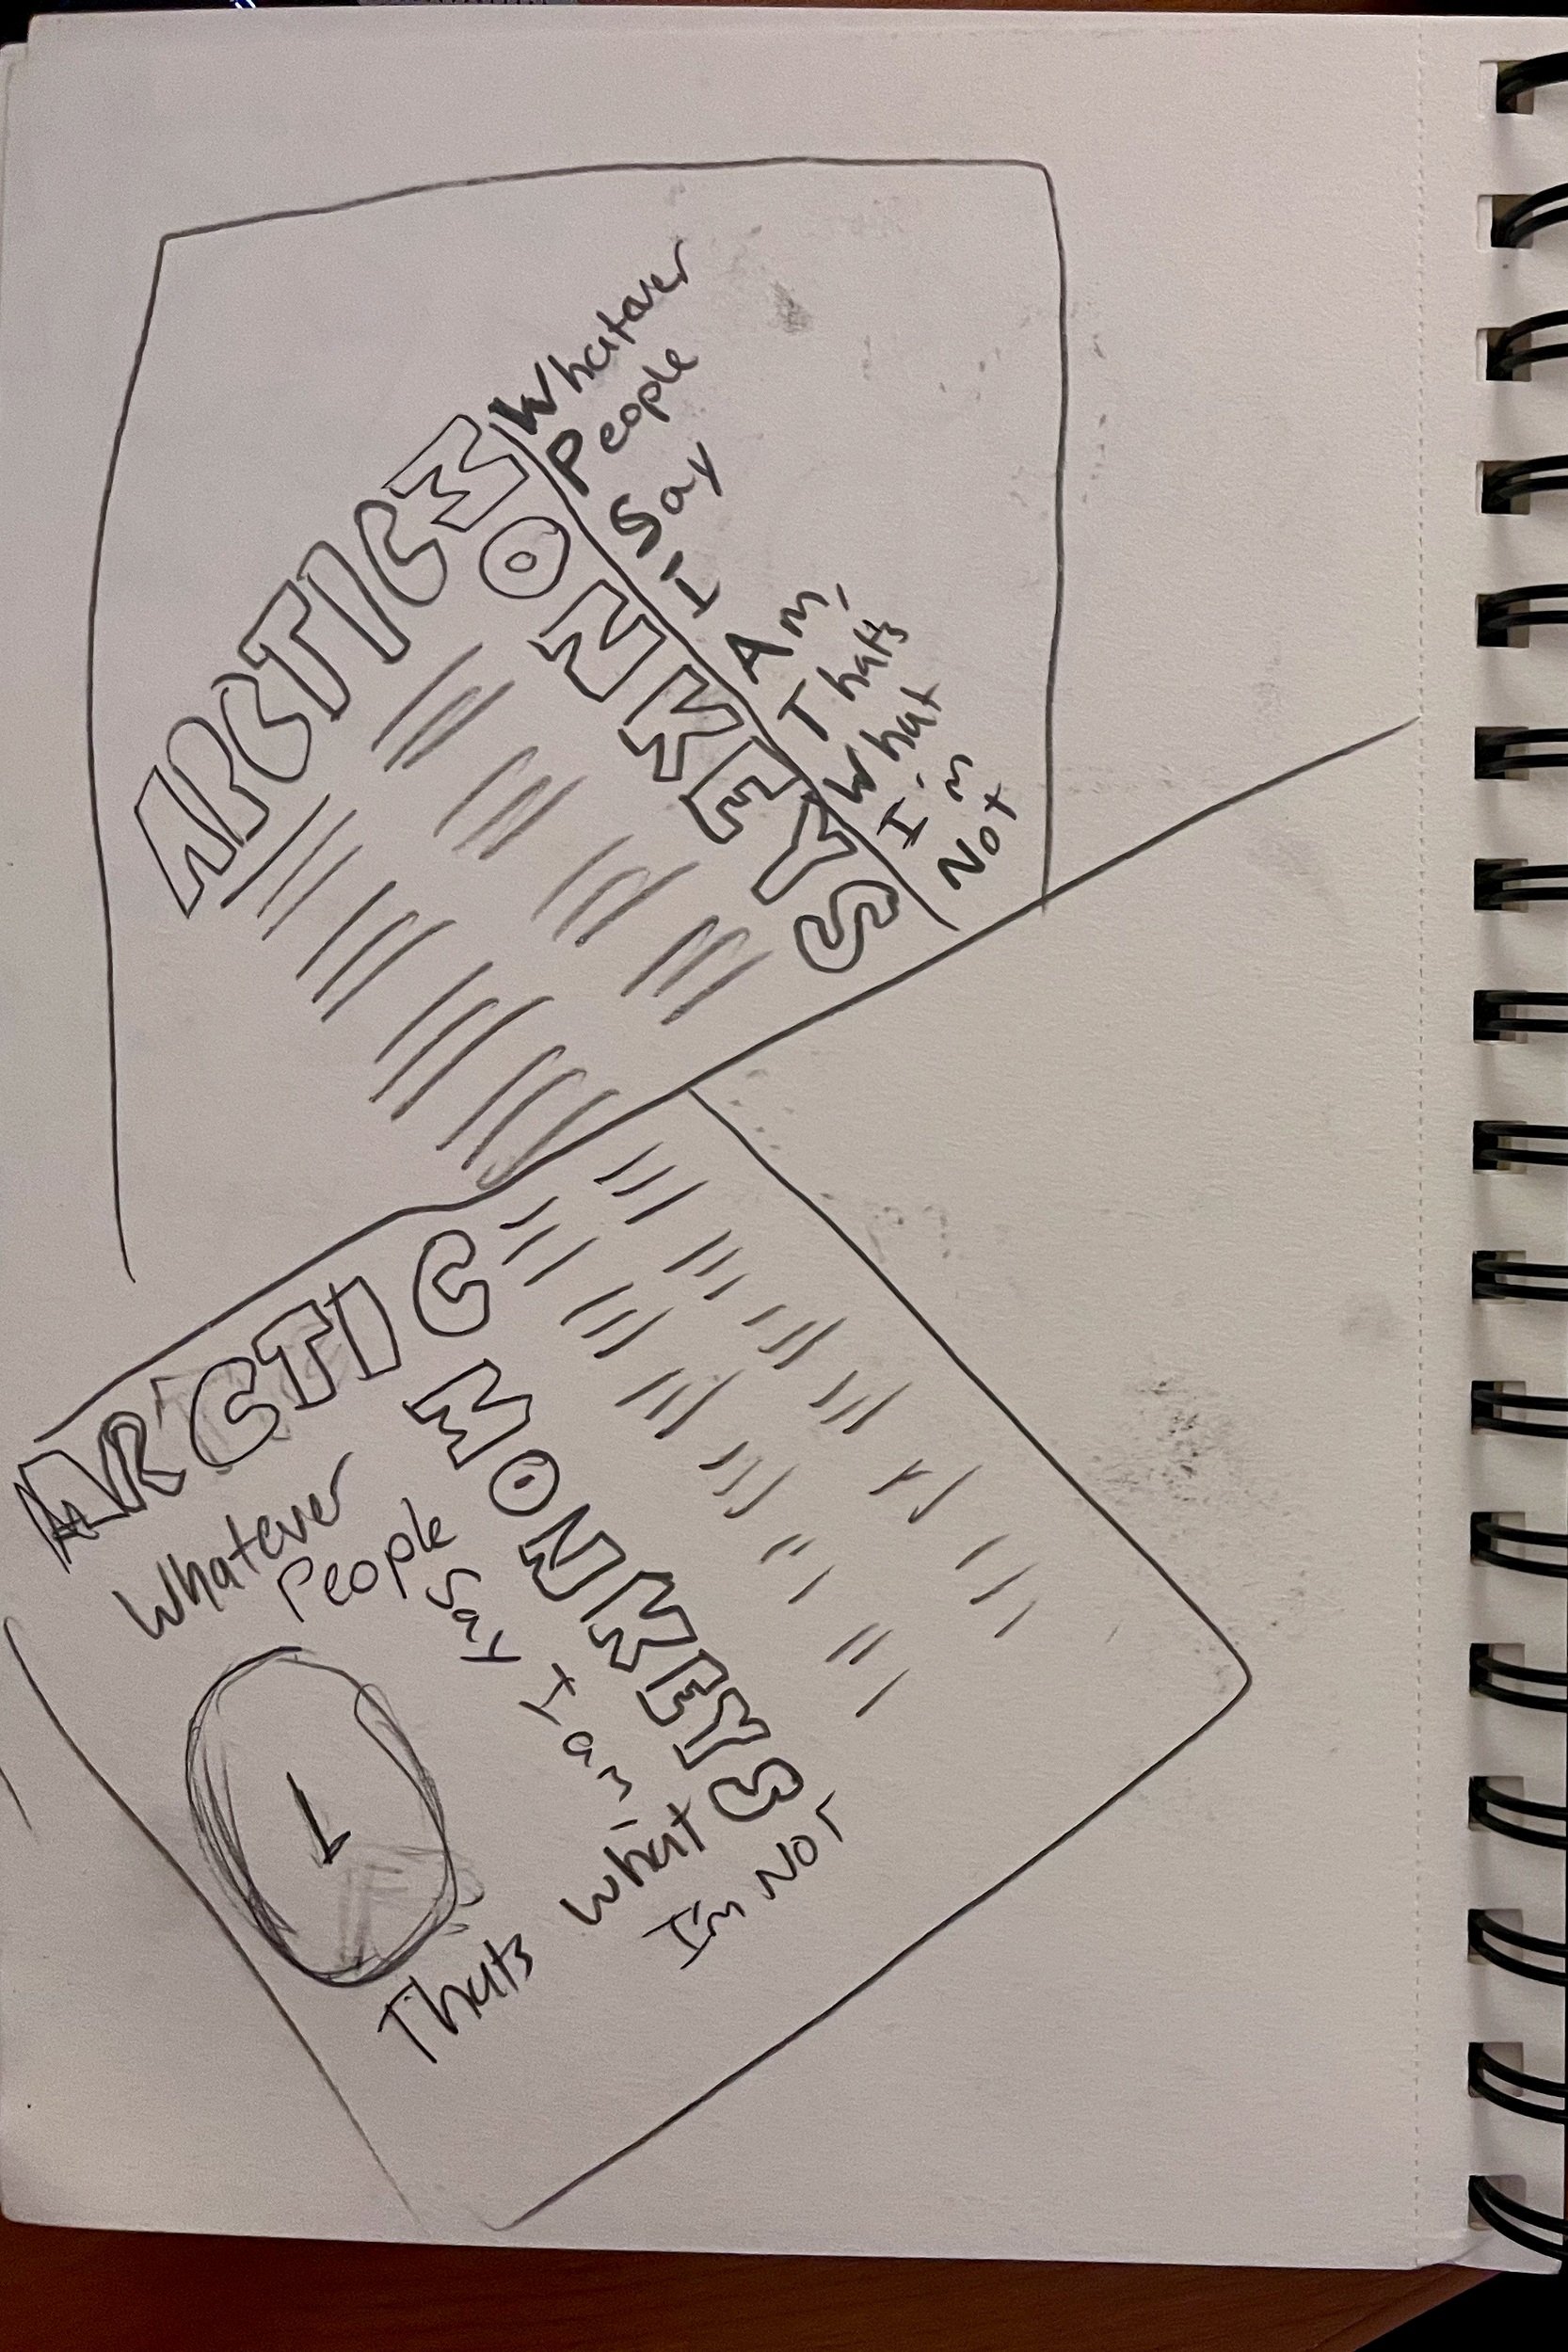 ARCTIC
MONKEYS
Whatever
People
Say
I
Am,
Thats
What
I'm
Not
ARCTIC
MONKEYS
Whatever
People
Say
I
am,
Thats
What
I'm NOT
1